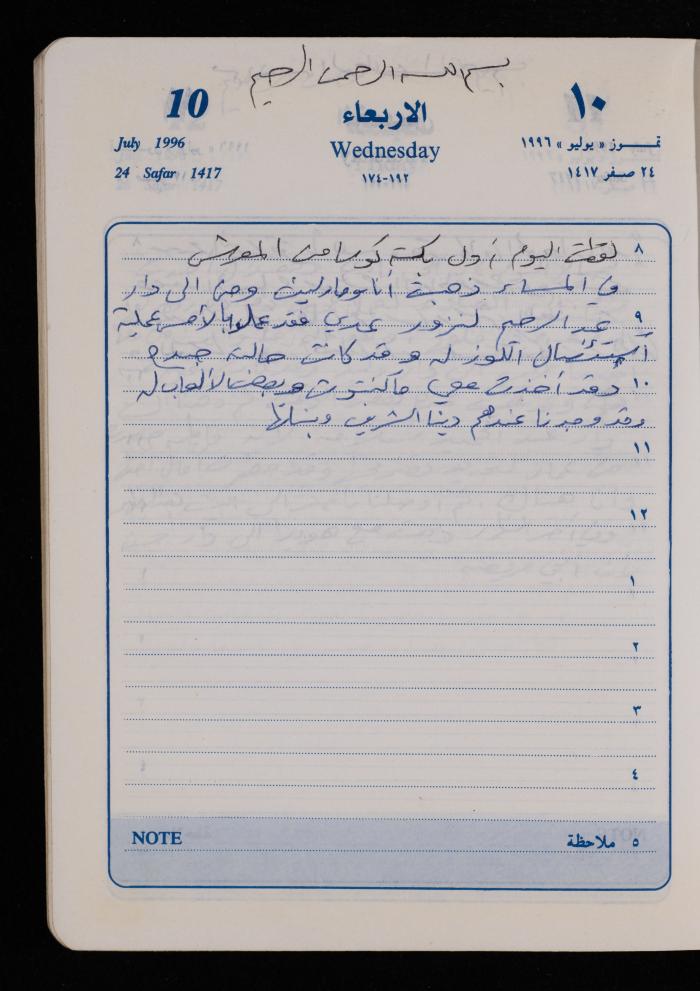 بسم الله الرحمن الرحيم
10
الاربعاء
١٠
July 1996
Wednesday
تمـــوز « يوليو » ١٩٩٦
24 Safar 1417
١٩٢-١٧٤
٢٤ صـفر ١٤١٧
٨ لقطت اليوم أول بكسة كوسا من المعرش
في المساء ذهبت أنا ومادلين وحنّ الى دار
٩ عبد الرحيم لنزور عدي فقد عملوا بالأمس عملية
استئصال اللوز له وقد كانت حالته جيدة
١٠ وقد أخذت معي ماكنتوش وبعض الألعاب له
وقد وجدنا عندهم دينا الشريف وبناتها
١١
١٢
١
٢
٣
٤
NOTE
٥ ملاحظة